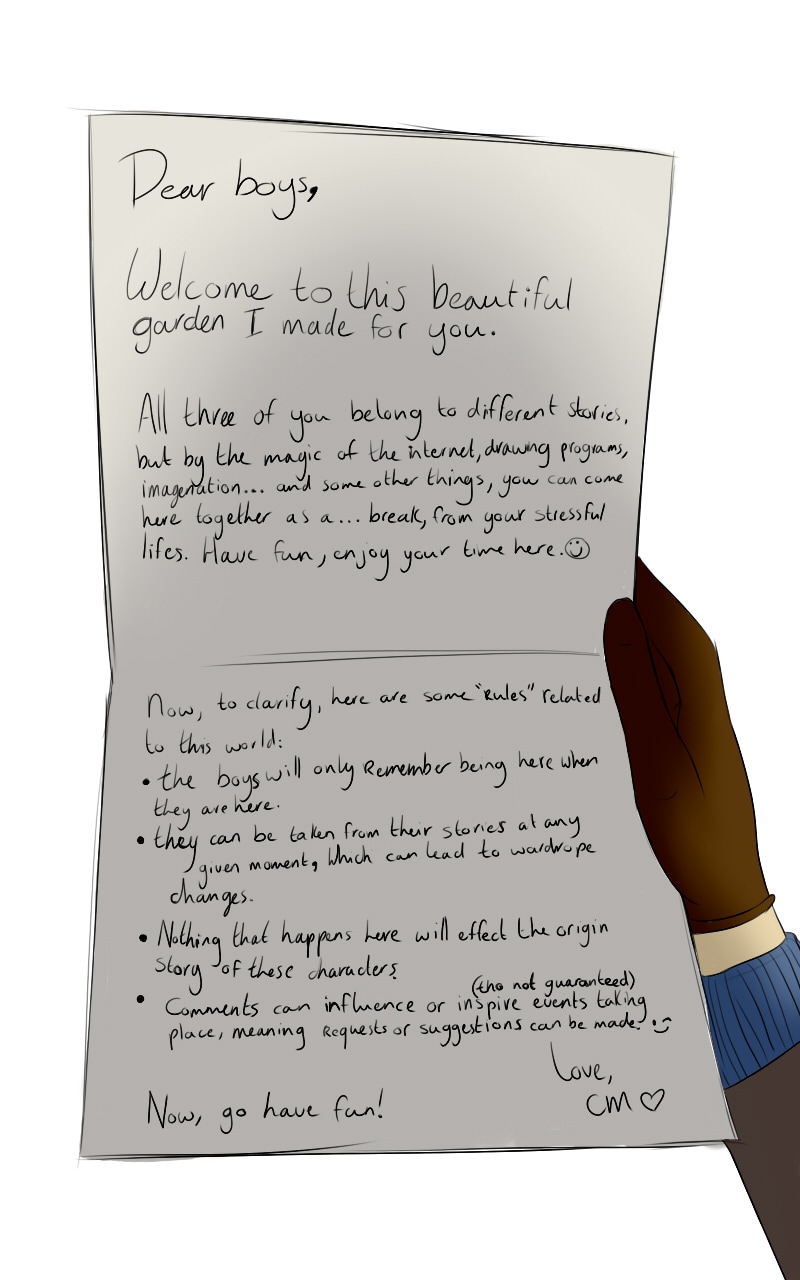 Dear boys,
Welcome to this beautiful
garden I made for you.
All three of you belong to different stories,
but by the magic of the internet, drawing programs,
imagenation... and some other things, you can come
here together as a... break, from your stressful
lifes. Have fun, enjoy your time here. ☺
Now, to clarify, here are some "Rules" related
to this world:
• the boys will only Remember being here when
they are here.
• they can be taken from their stories at any
given moment, which can lead to wardrope
changes.
• Nothing that happens here will effect the origin
story of these characters.
(tho not guaranteed)
• Comments can influence or inspire events taking
place, meaning Requests or suggestions can be made. :)
Love,
CM ♡
Now, go have fun!